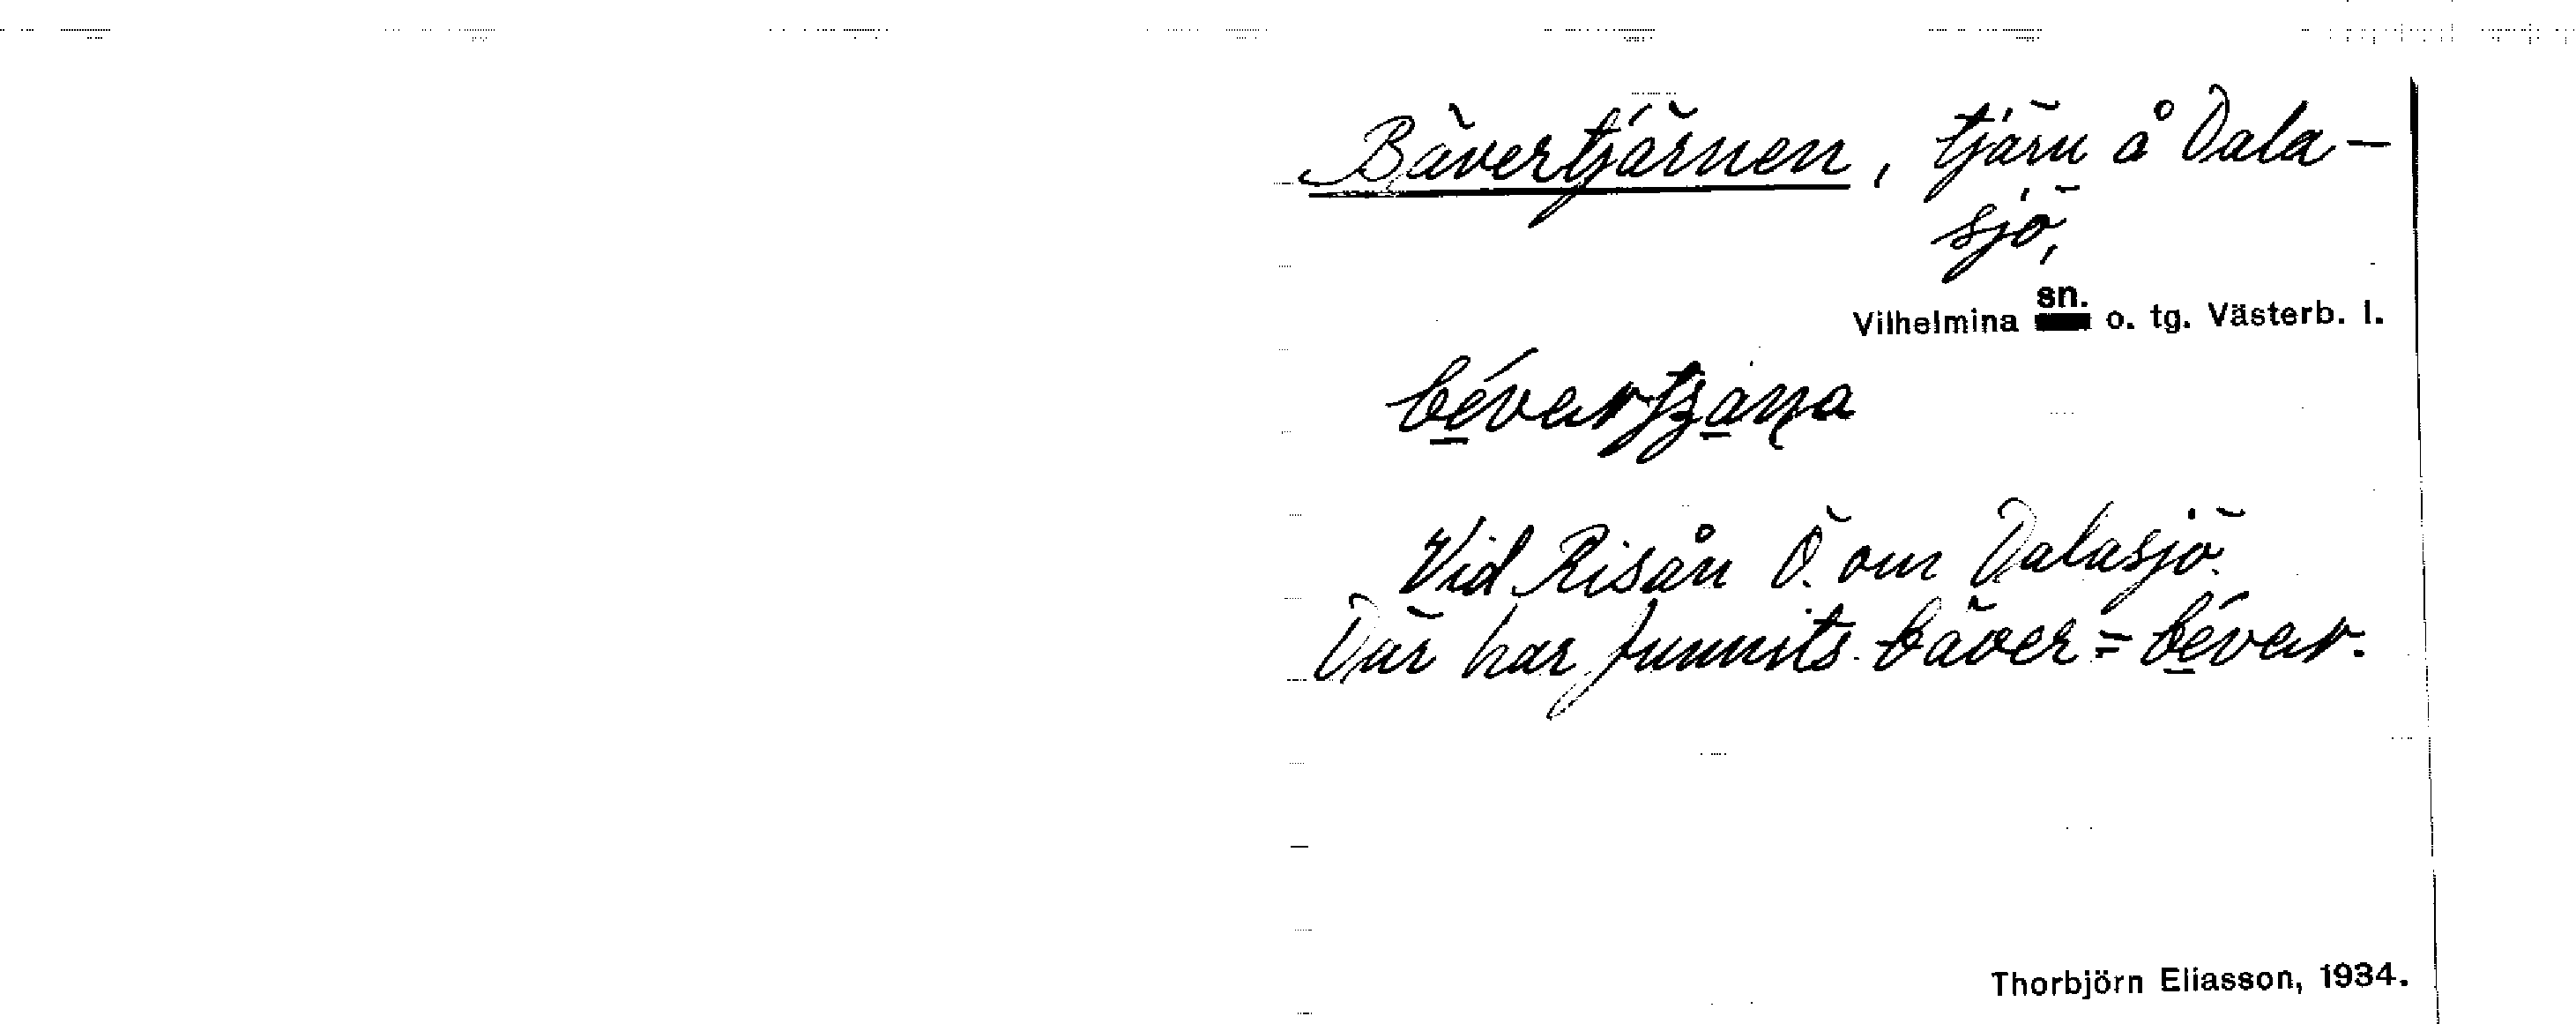 Bävertjärnen, tjärn å Dala-
sjö,
Vilhelmina sn. o. tg. Västerb. l.
Vid Risån Ö. om Dalasjö.
Där har funnits bäver = bévar.
Thorbjörn Eliasson, 1934.